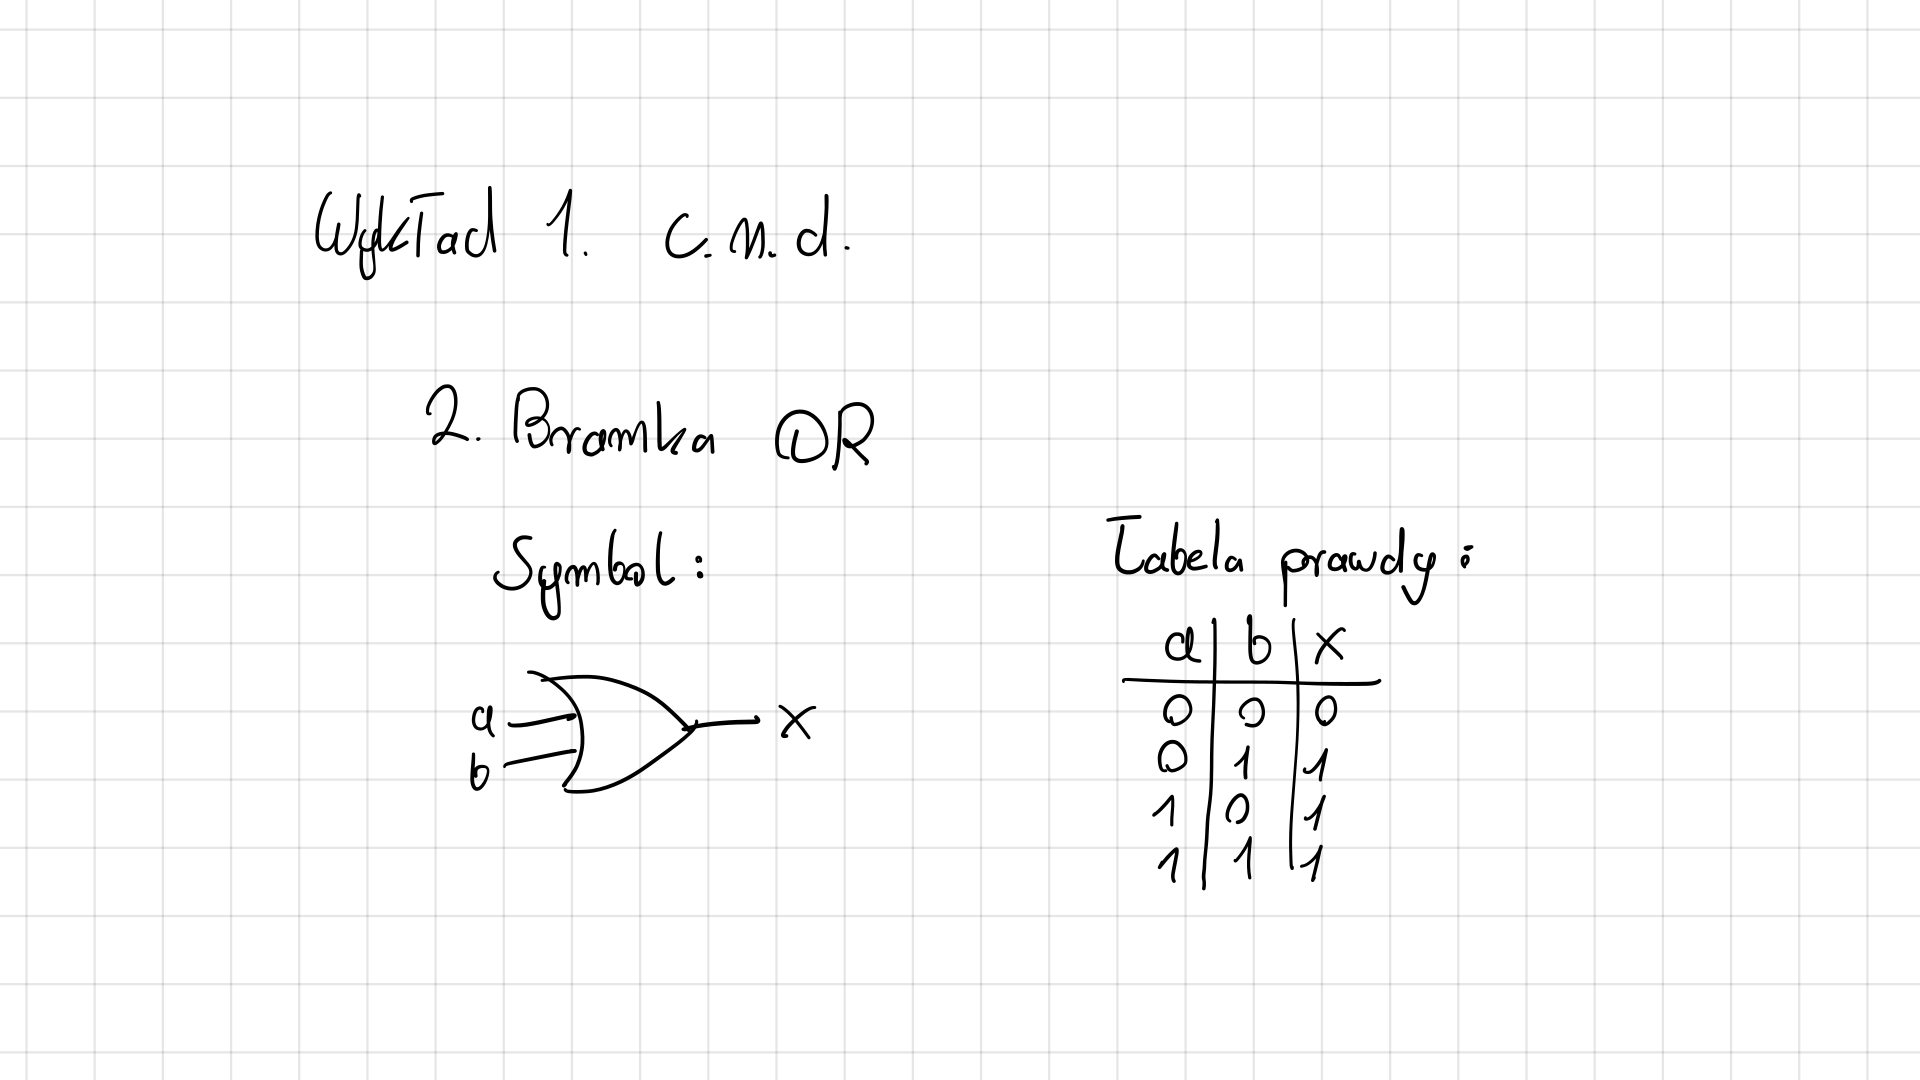 Wykład 1. c.n.d.
2. Bramka OR
Symbol:
a
b
x
Tabela prawdy:
a b x
0 0 0
0 1 1
1 0 1
1 1 1